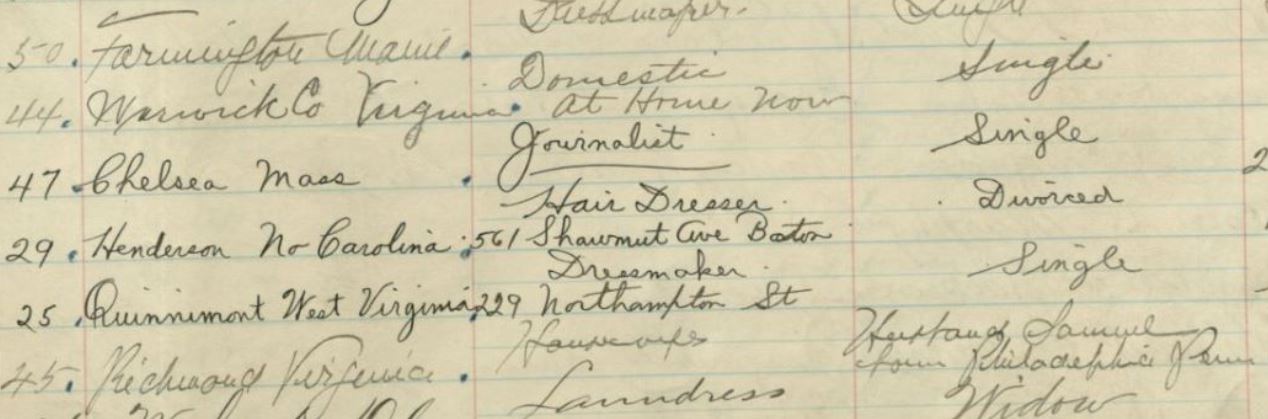 Dressmaker. Single
50. Farmington Maine.
Domestic Single
44. Warwick Co Virginia. at Home now
Journalist Single
47. Chelsea Mass.
Hair Dresser. Divorced
29. Henderson No Carolina. 561 Shawmut Ave Boston
Dressmaker. Single
25. Quinnimont West Virginia. 229 Northampton St
Housewife Husband Samuel
from Philadelphia Penn
45. Richmond Virginia.
Laundress Widow